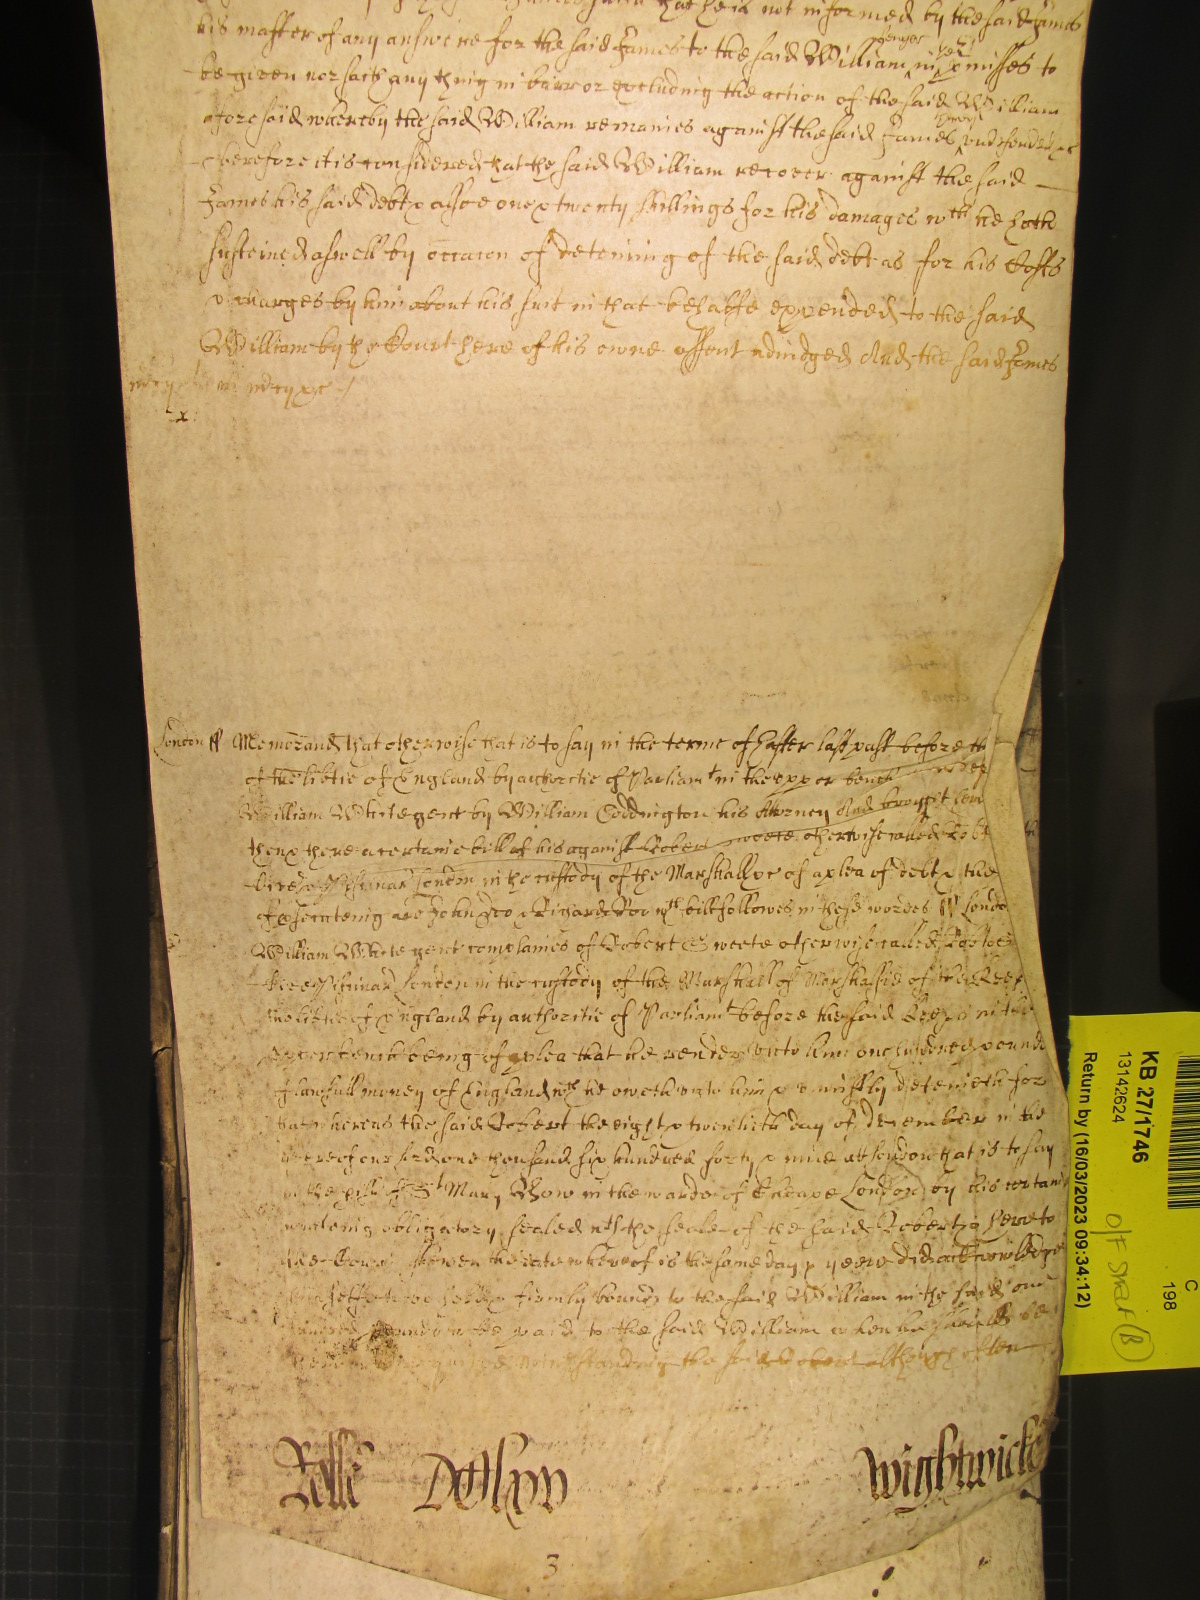 that he is not informed by the said James
his master of any answere for the said James to the said William in p̱misses to
be given nor saith any thing in barr or precluding the action of the said William
aforesaid whereby the said William remaines against the said James thereof undefended &c
Therefore it is considered that the said William recover against the said
James his said debt & alsoe one & twenty shillings for his damages wch he hath
susteined aswell by occasion of deteining of the said debt as for his Costs
& charges by him about his suit in that behalfe expended to the said
William by the Court here of his owne assent adiudged And the said James
in mercy &c
x
London ss Memorand that otherwise that is to say in the terme of Easter last past before the
of the libtie of England by authoritie of Parliamt in the upper bench
William White gent by William Coddington his Attorney And brought here
then & there a certaine bill of his against Robert otherwise called Robt
London in the custody of the Marshall &c of a plea of debt & the
of p̱secuteing are John Doo & Richard Roo wch bill followes in these words ss London
William White gent complaines of Robert otherwise called Robt
London in the custody of the Marshall of the Marshalsie of the Keep
the libtie of England by authoritie of Parliamt before the said Keep in the
upper bench being of a plea that he render unto him one hundred pounds
of lawfull money of England wch he oweth unto him & uniustly deteineth for
that whereas the said Robert the eight & twentieth day of December in the
yeere of our lord one thousand six hundred forty & nine att London that is to say
in the pish of St Mary Bow in the warde of Cheape London by his certaine
writeing obligatory sealed wth the seale of the said Robert & here to
the Court shewen the date whereof is the same day & yeere did acknowledge
himselfe to be held & firmly bound to the said William in the said one
hundred pounds to be paid to the said William when he should be
thereunto required Notwithstanding the said Robert although often
Rolle Wightwicke
3
KB 27/1746
13142624
Return by (16/03/2023 09:34:12)
C
198
O/F Shelf (B)